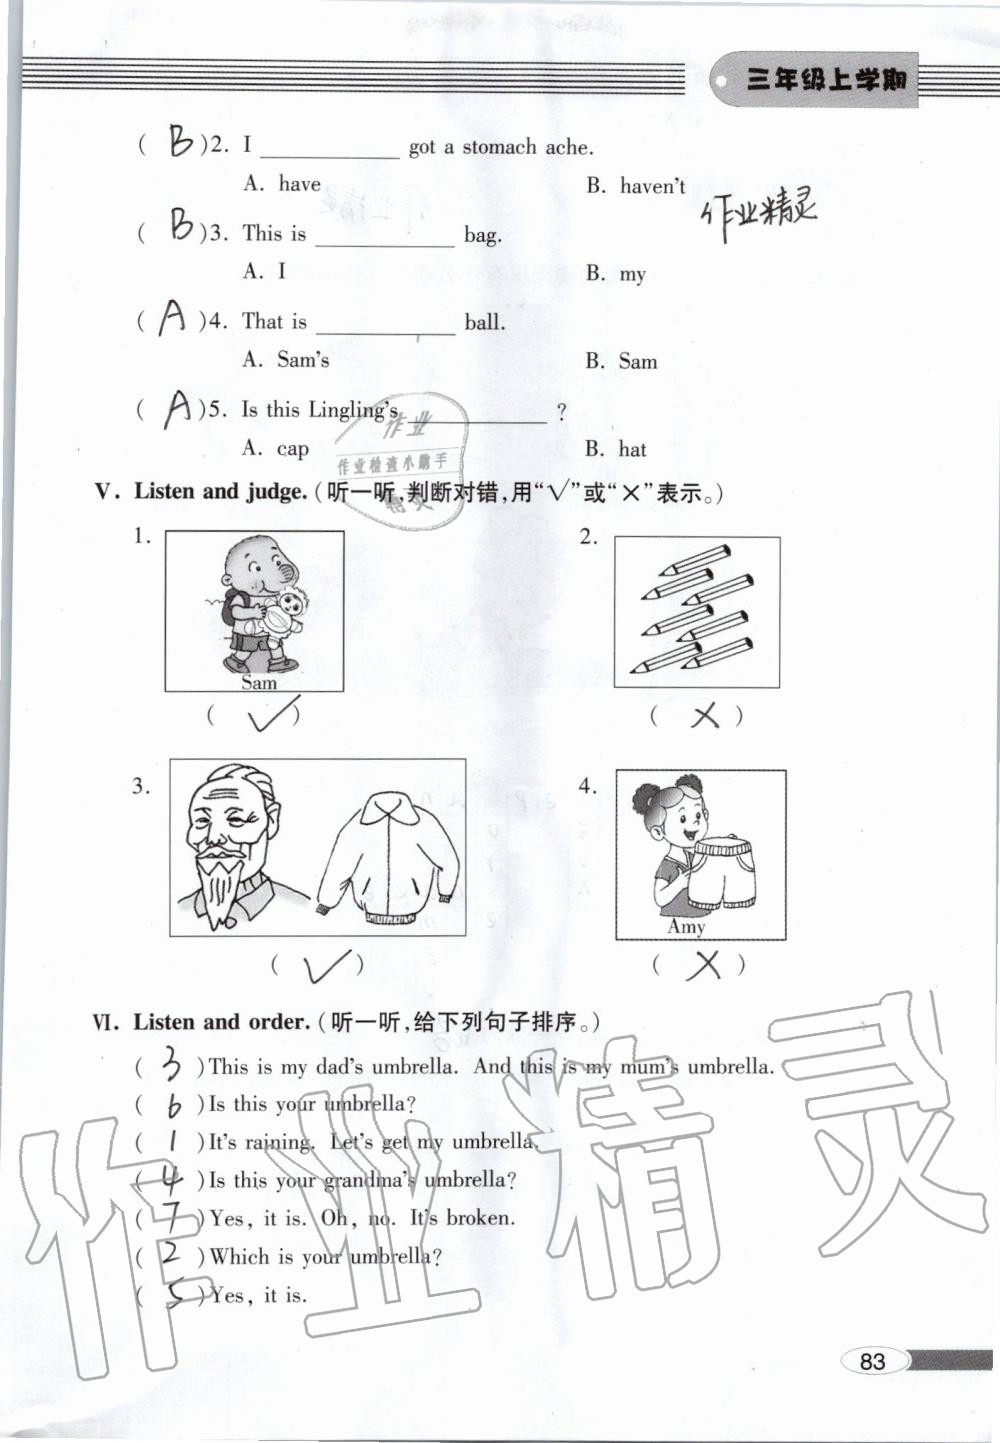 三年级上学期
( B )2. I ____________ got a stomach ache.
A. have B. haven't
作业精灵
( B )3. This is ____________ bag.
A. I B. my
( A )4. That is ____________ ball.
A. Sam's B. Sam
( A )5. Is this Lingling's ____________ ?
A. cap B. hat
作业
作业检查小助手
精灵
V. Listen and judge.(听一听,判断对错,用“√”或“×”表示。)
1. 2.
Sam
( √ ) ( × )
3. 4.
Amy
( √ ) ( × )
Ⅵ. Listen and order.(听一听,给下列句子排序。)
( 3 )This is my dad's umbrella. And this is my mum's umbrella.
( 6 )Is this your umbrella?
( 1 )It's raining. Let's get my umbrella.
( 4 )Is this your grandma's umbrella?
( 7 )Yes, it is. Oh, no. It's broken.
( 2 )Which is your umbrella?
( 5 )Yes, it is.
作业精灵
83